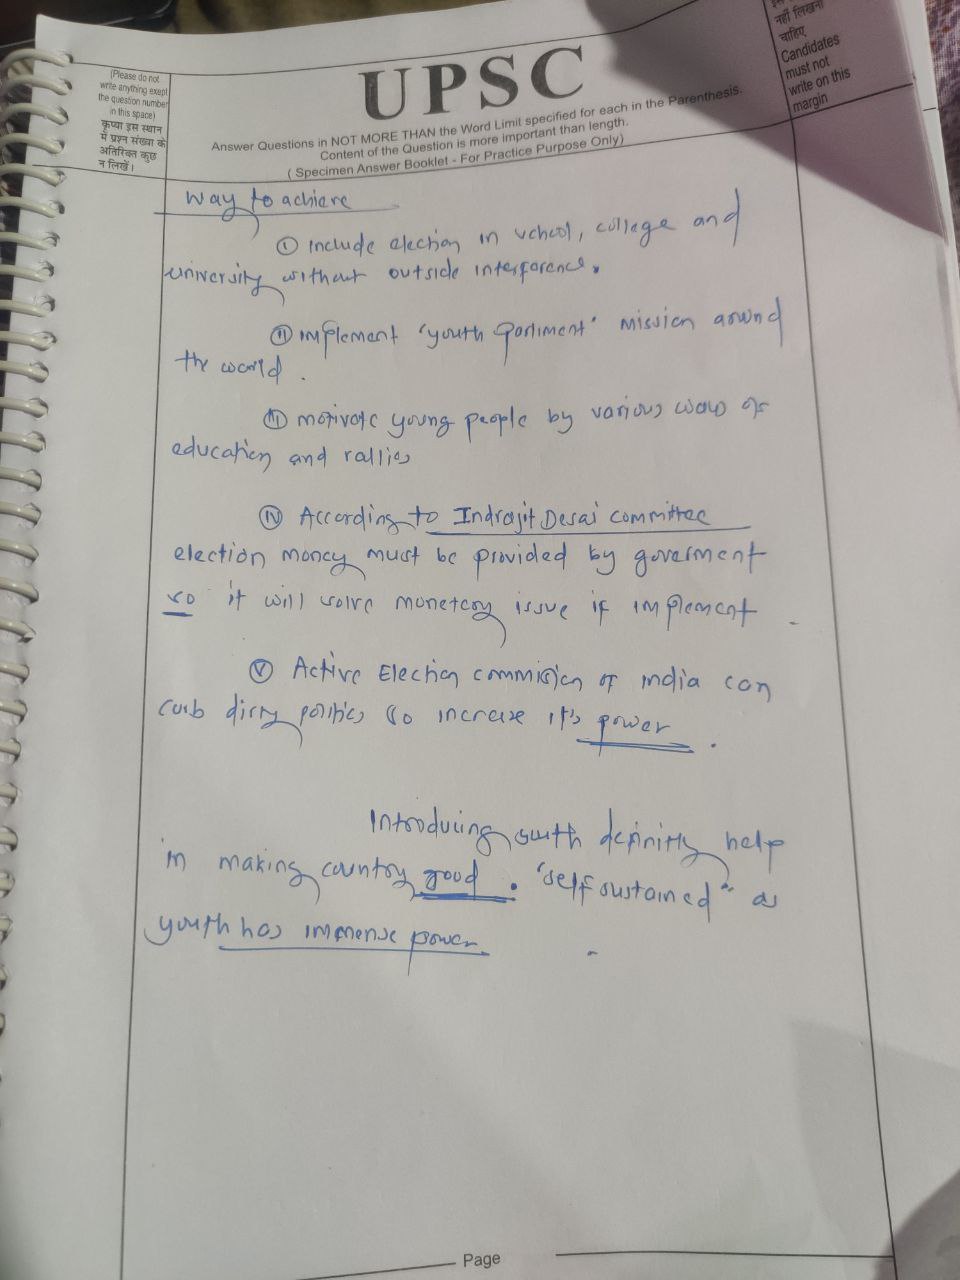 (Please do not
write anything exept
the question number
in this space)
कृप्या इस स्थान
में प्रश्न संख्या के
अतिरिक्त कुछ
न लिखें।
UPSC
Answer Questions in NOT MORE THAN the Word Limit specified for each in the Parenthesis.
Content of the Question is more important than length.
( Specimen Answer Booklet - For Practice Purpose Only)
नहीं लिखना
चाहिए
Candidates
must not
write on this
margin
Way to achieve
(I) include election in school, college and
university without outside interference.
(II) implement 'youth parliment' mission around
the world.
(III) motivate young people by various ways of
education and rallies
(IV) According to Indrajit Desai committee
election money must be provided by goverment
so it will solve monetory issue if implement.
(V) Active Election commision of india can
curb dirty politics so increase it's power.
Introducing youth definitly help
in making country good. 'self sustained" as
youth has immense power.
Page